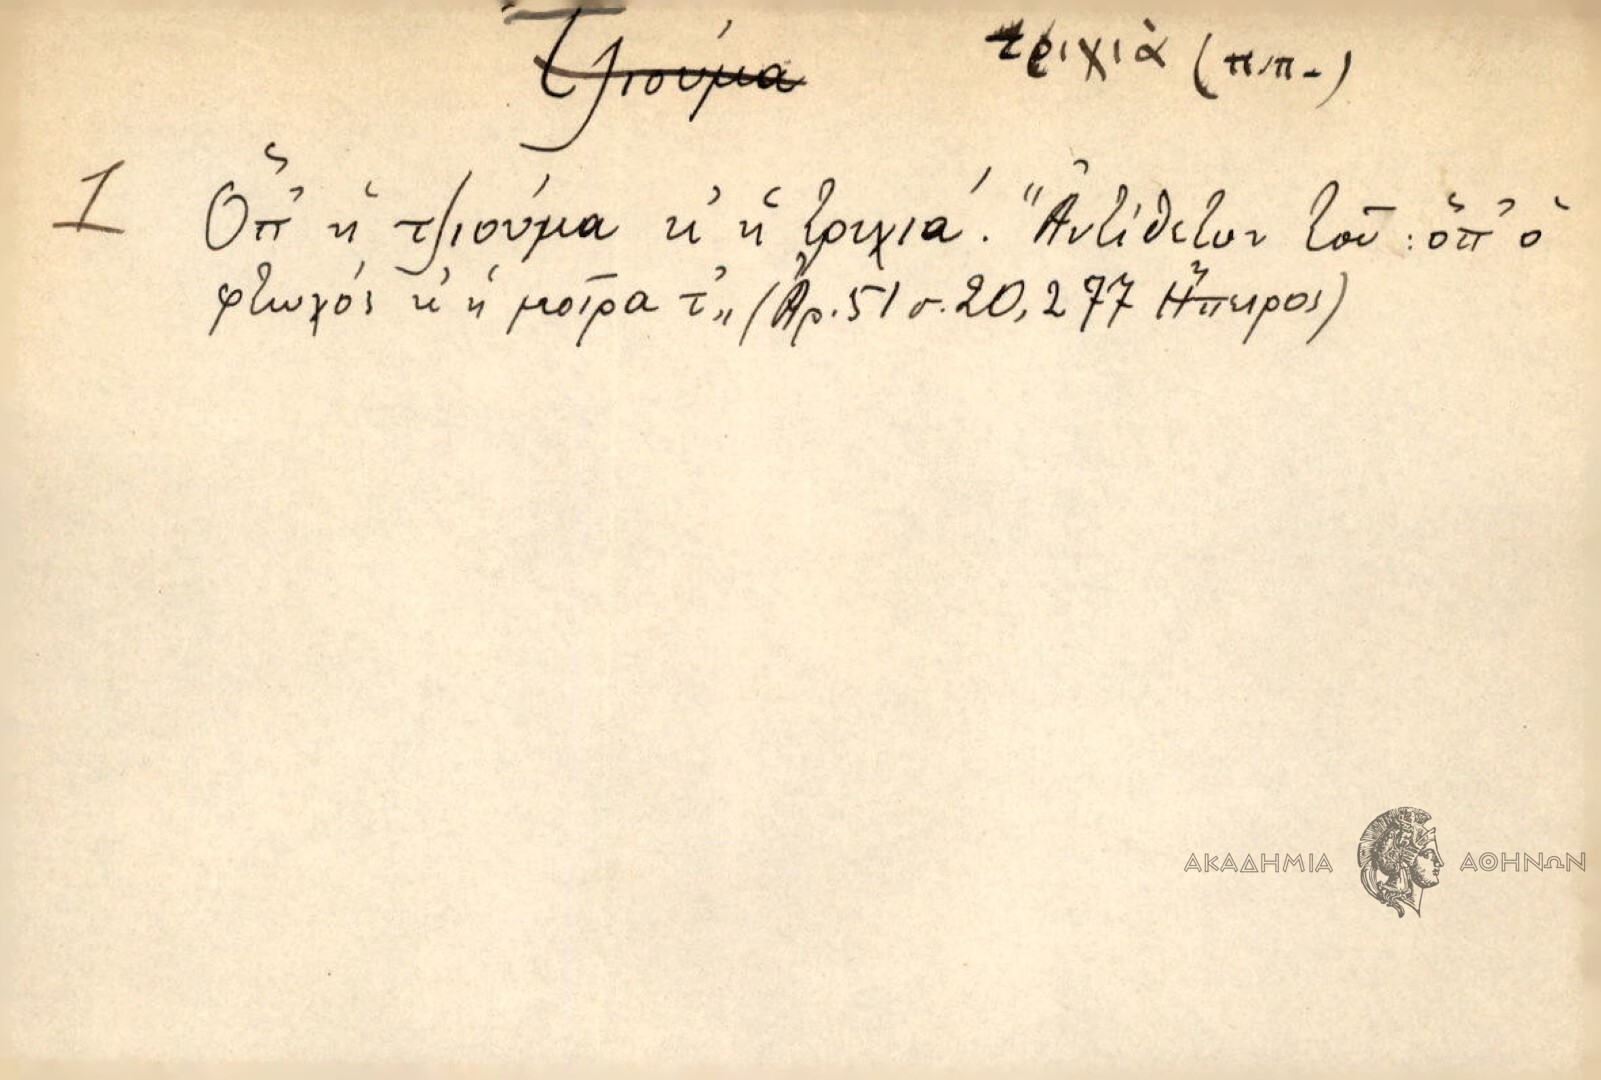 Τζιούμα τριχιὰ (π.π.)
1 Ὅπ' ἡ τζιούμα κ' ἡ τριχιά. "Ἀντίθετον τοῦ: ὅπ' ὁ
φτωχός κ' ἡ μοῖρα τ'" (Ἀρ. 51 σ. 20, 277 Ἤπειρος)
ΑΚΑΔΗΜΙΑ ΑΘΗΝΩΝ